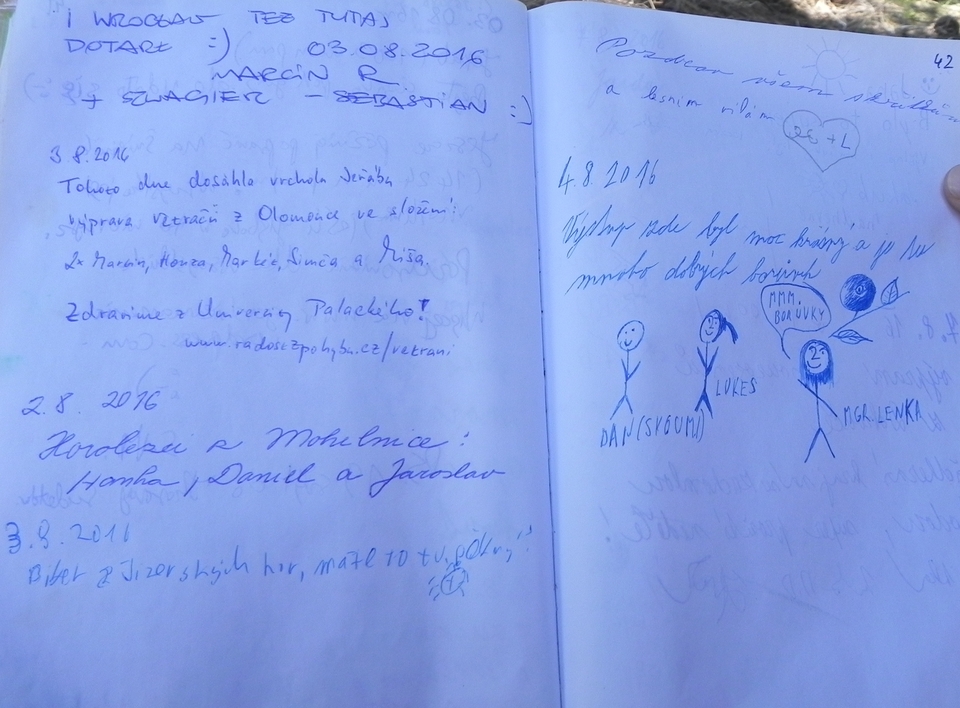 I WROCŁAW TEŻ TUTAJ
DOTARŁ :) 03.08.2016
MARCIN R
+ SZWAGIER - SEBASTIAN :)
3.8.2016
Tohoto dne dosáhla vrcholu Jeřábu
výprava větráčů z Olomouce ve složení:
2x Marcin, Honza, Markéta, Simča a Míša.
Zdravíme z Univerzity Palackého!
www.radostzpohybu.cz/vetrani
2.8. 2016
Horolezci z Mohelnice:
Hanka, Daniel a Jaroslav
3.8.2016
z Jizerských hor, máte to tu pěkný!
42
Pozdrav všem skřítkům
a lesním vílám
+ L
4.8.2016
Výstup sem byl moc krásný a je tu
mnoho dobrých borůvek
MMM.
BORŮVKY
DAN
LUKES
MGR. LENKA